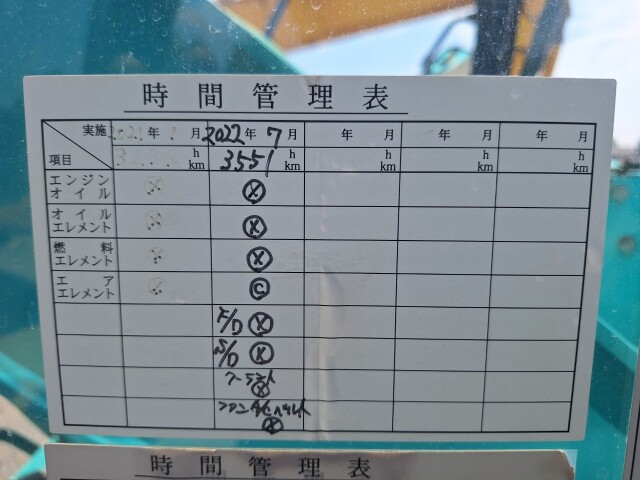 時間管理表
実施 年 月 2022年 7月 年 月 年 月 年 月
項目 h km 3551 h km h km h km h km
エンジンオイル ⓧ
オイルエレメント ⓧ
燃料エレメント ⓧ
エアエレメント ⓒ
F/D ⓧ
S/D ⓧ
クーラント ⓧ
ファンベルト ⓧ
時間管理表